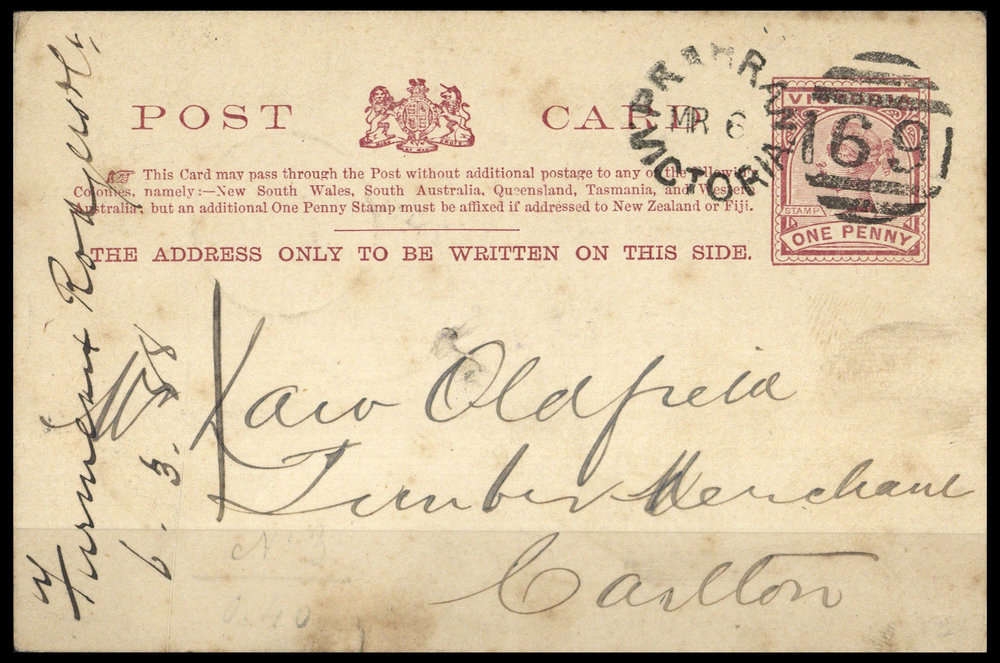 POST CARD
This Card may pass through the Post without additional postage to any of the following
Colonies, namely:—New South Wales, South Australia, Queensland, Tasmania, and Western
Australia; but an additional One Penny Stamp must be affixed if addressed to New Zealand or Fiji.
THE ADDRESS ONLY TO BE WRITTEN ON THIS SIDE.
PRAHRAN
MR 6
VICTORIA
169
VI
STAMP
ONE PENNY
Mr Kaw Oldfield
Timber Merchant
Carlton
6. 3. 88